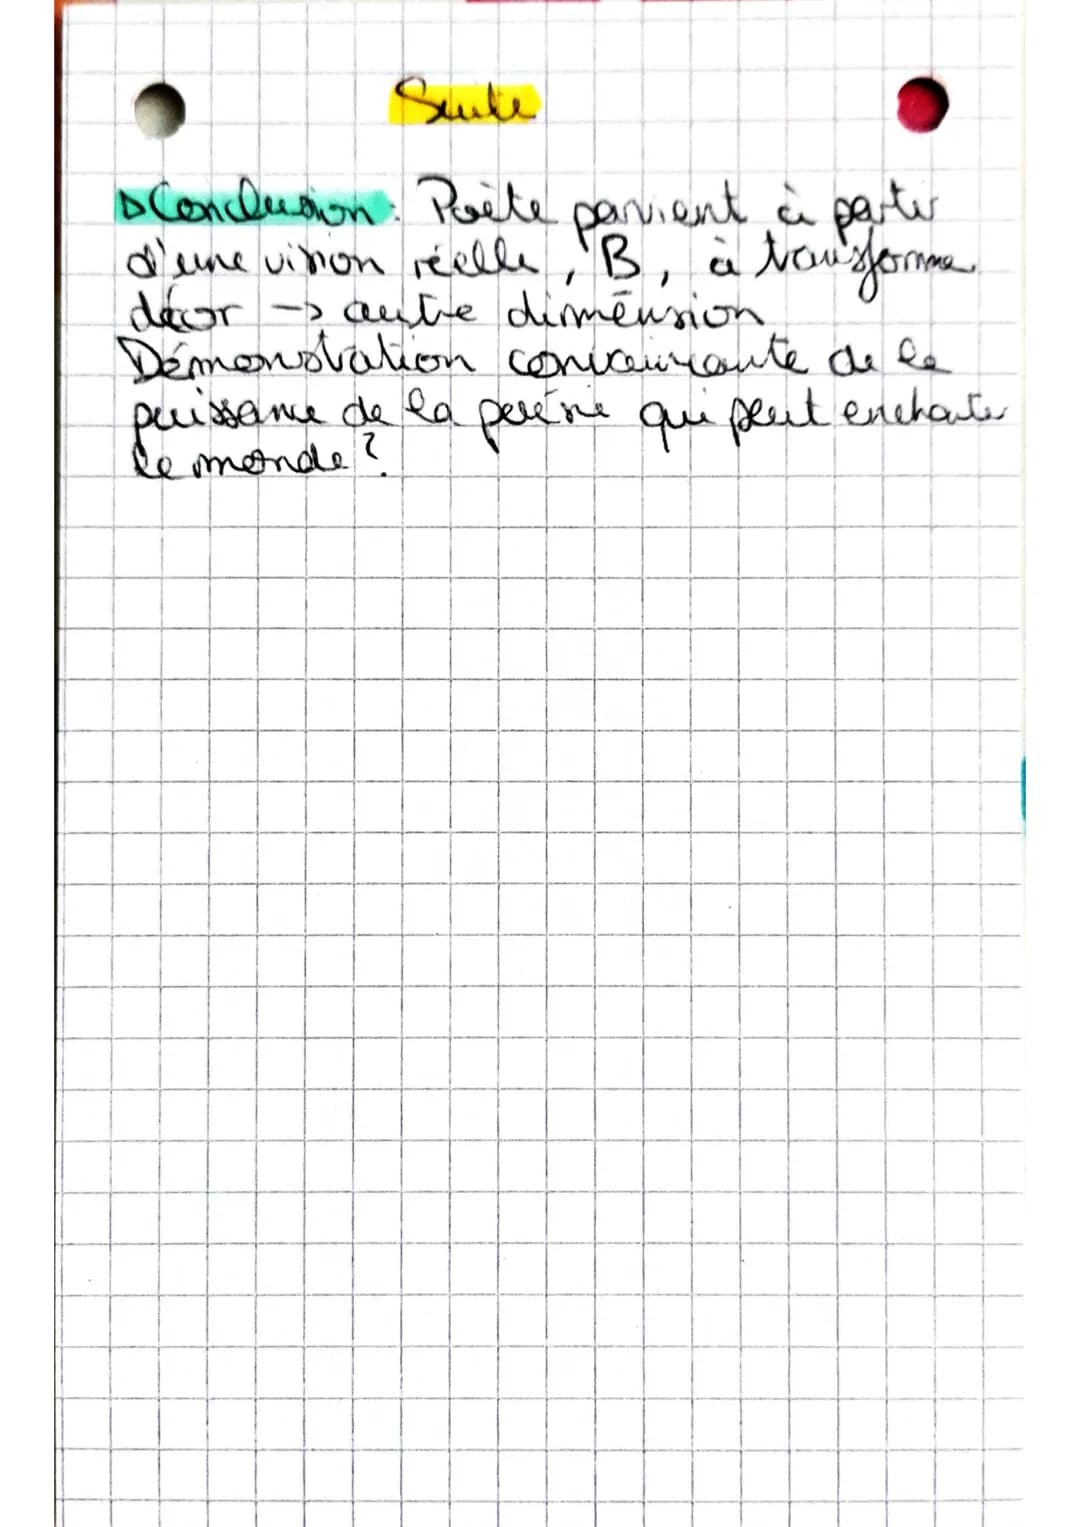 Suite
▷Conclusion : Poète parvient à partir
d'une vision réelle, B, à transformer
décor -> autre dimension
Démonstration convaincante de la
puissance de la poésie qui peut enchanter
le monde ?